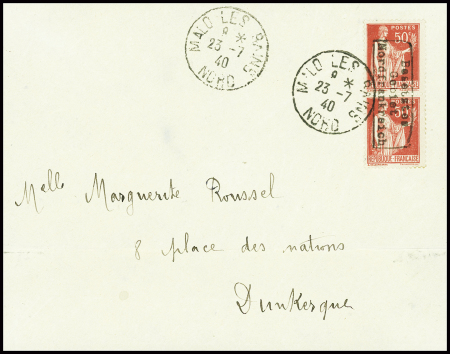 MALO LES BAINS
8 *
23 - 7
40
NORD
MALO LES BAINS
8 *
23 - 7
40
NORD
POSTES
50c
Besetztes
Gebiet
Nordfrankreich
50c
REPUBLIQUE FRANÇAISE
Melle Marguerite Roussel
8 place des nations
Dunkerque